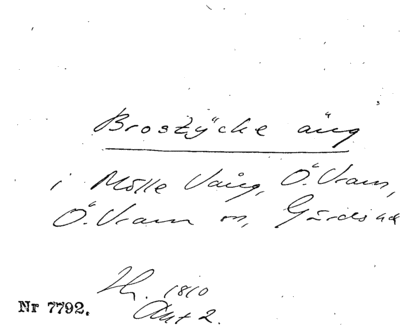 Brostÿcke äng
i Mölle Vång, Ö. Vram,
Ö. Vram sn, Gärds hd
Lh. 1810
Akt 2.
Nr 7792.